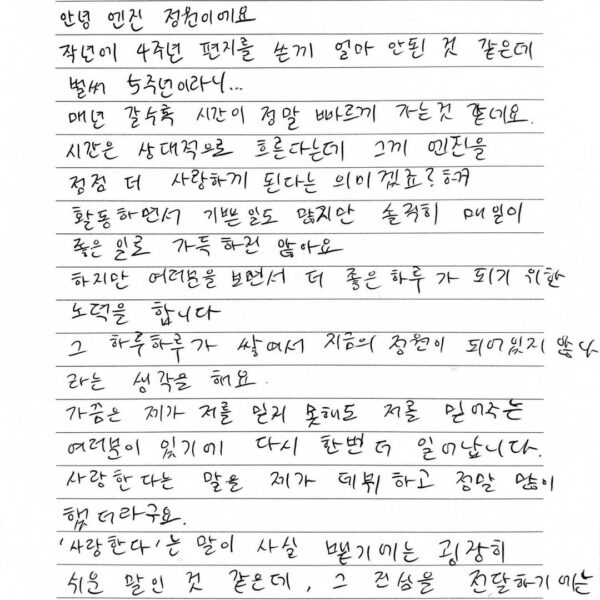 안녕 엔진 정원이에요
작년에 4주년 편지를 쓴게 얼마 안된 것 같은데
벌써 5주년이라니...
매년 갈수록 시간이 정말 빠르게 가는것 같네요.
시간은 상대적으로 흐른다는데 그게 엔진을
점점 더 사랑하게 된다는 의미겠죠? ㅎㅎ
활동하면서 기쁜일도 많지만 솔직히 매일이
좋은 일로 가득 하진 않아요
하지만 여러분을 보면서 더 좋은하루 가 되기 위한
노력을 합니다
그 하루하루 가 쌓여서 지금의 정원이 되어있지 않나
라는 생각을 해요.
가끔은 제가 저를 믿지 못해도 저를 믿어주는
여러분이 있기에 다시 한번 더 일어납니다.
사랑한다는 말을 제가 데뷔 하고 정말 많이
했 더라구요.
'사랑한다'는 말이 사실 뱉기에는 굉장히
쉬운 말인 것 같은데, 그 진심을 전달하기에는